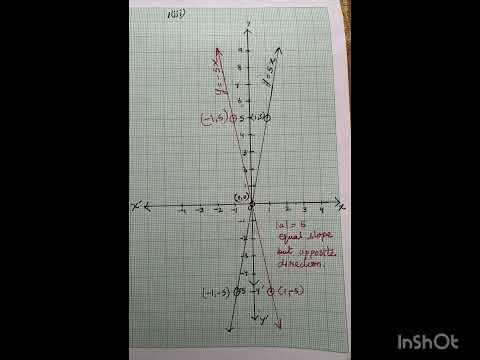 1(iii)
Y
y=-5x
y=5x
9
8
7
6
(-1,5)
5
(1,5)
4
3
2
1
(0,0)
X'
-4 -3 -2 -1
1 2 3 4
X
-1
-2
-3
-4
|a| = 5
equal slope
but opposite
direction.
(-1,-5)
-5
(1,-5)
Y'
InShOt